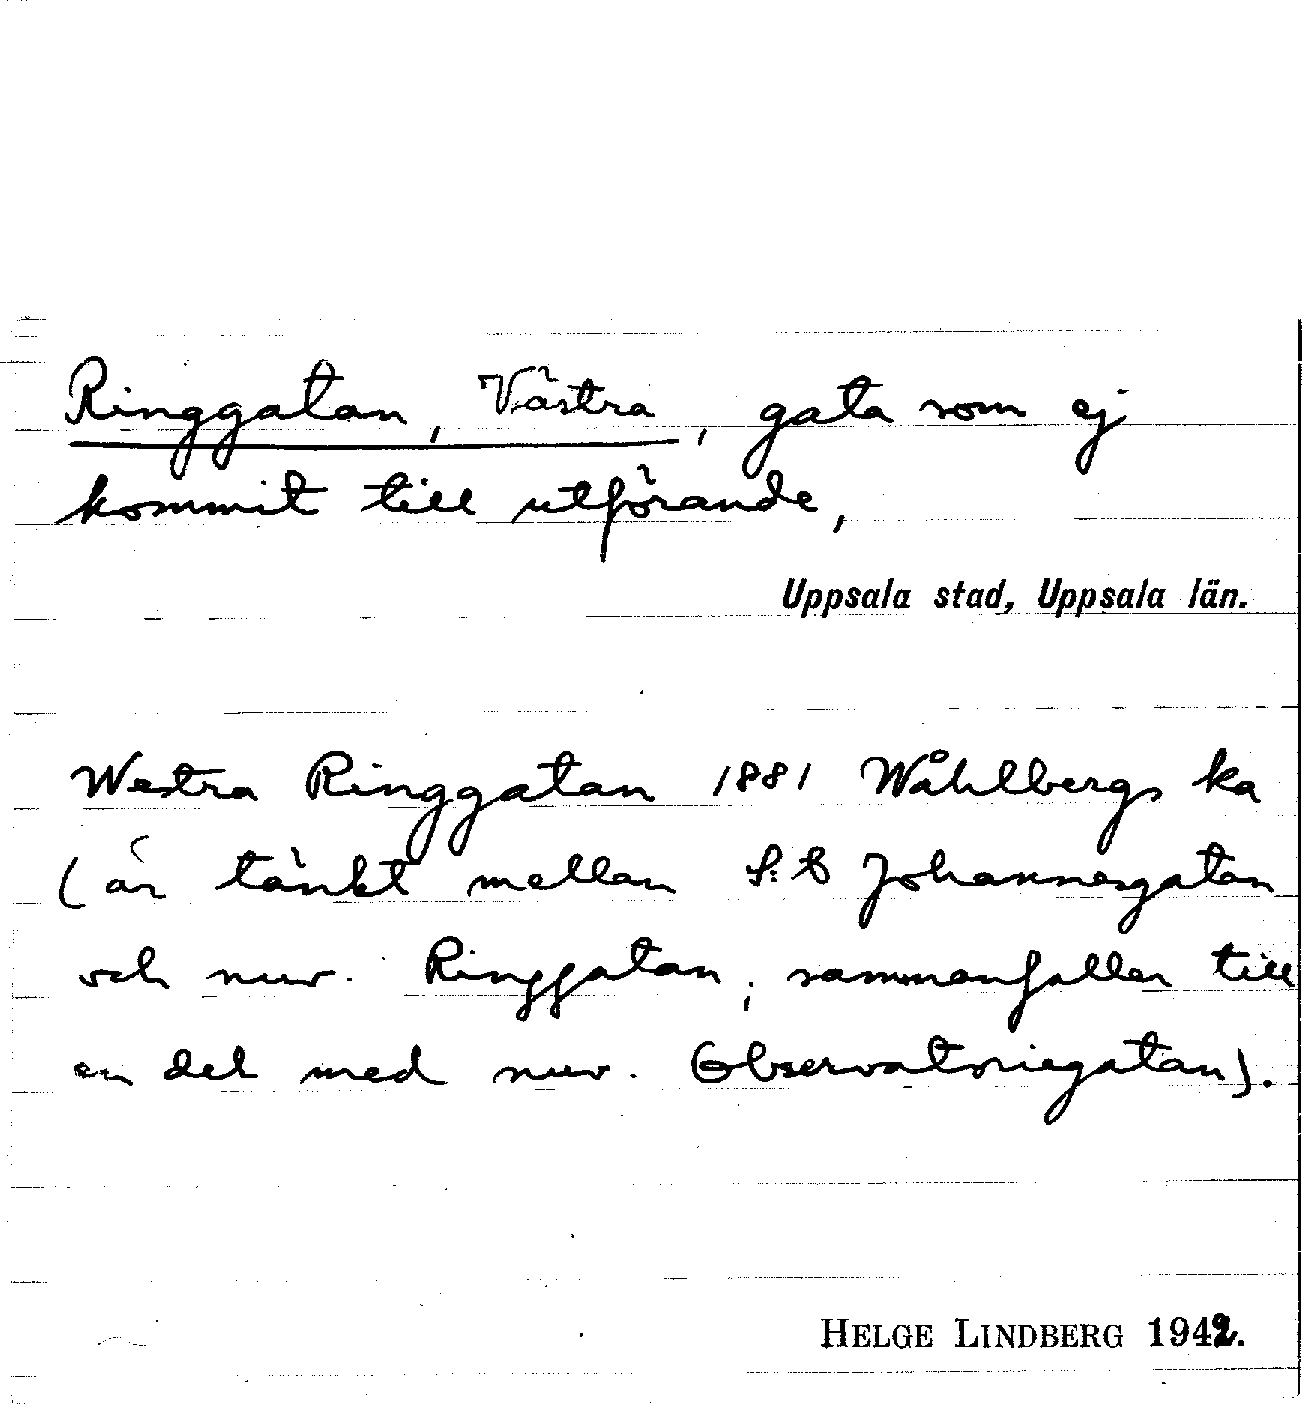 Ringgatan, Västra, gata som ej
kommit till utförande,
Uppsala stad, Uppsala län.
Westra Ringgatan 1881 Wåhlbergs ka
(är tänkt mellan S:t Johannesgatan
och nuv. Ringgatan, sammanfaller till
en del med nuv. Observatoriegatan).
HELGE LINDBERG 1942.